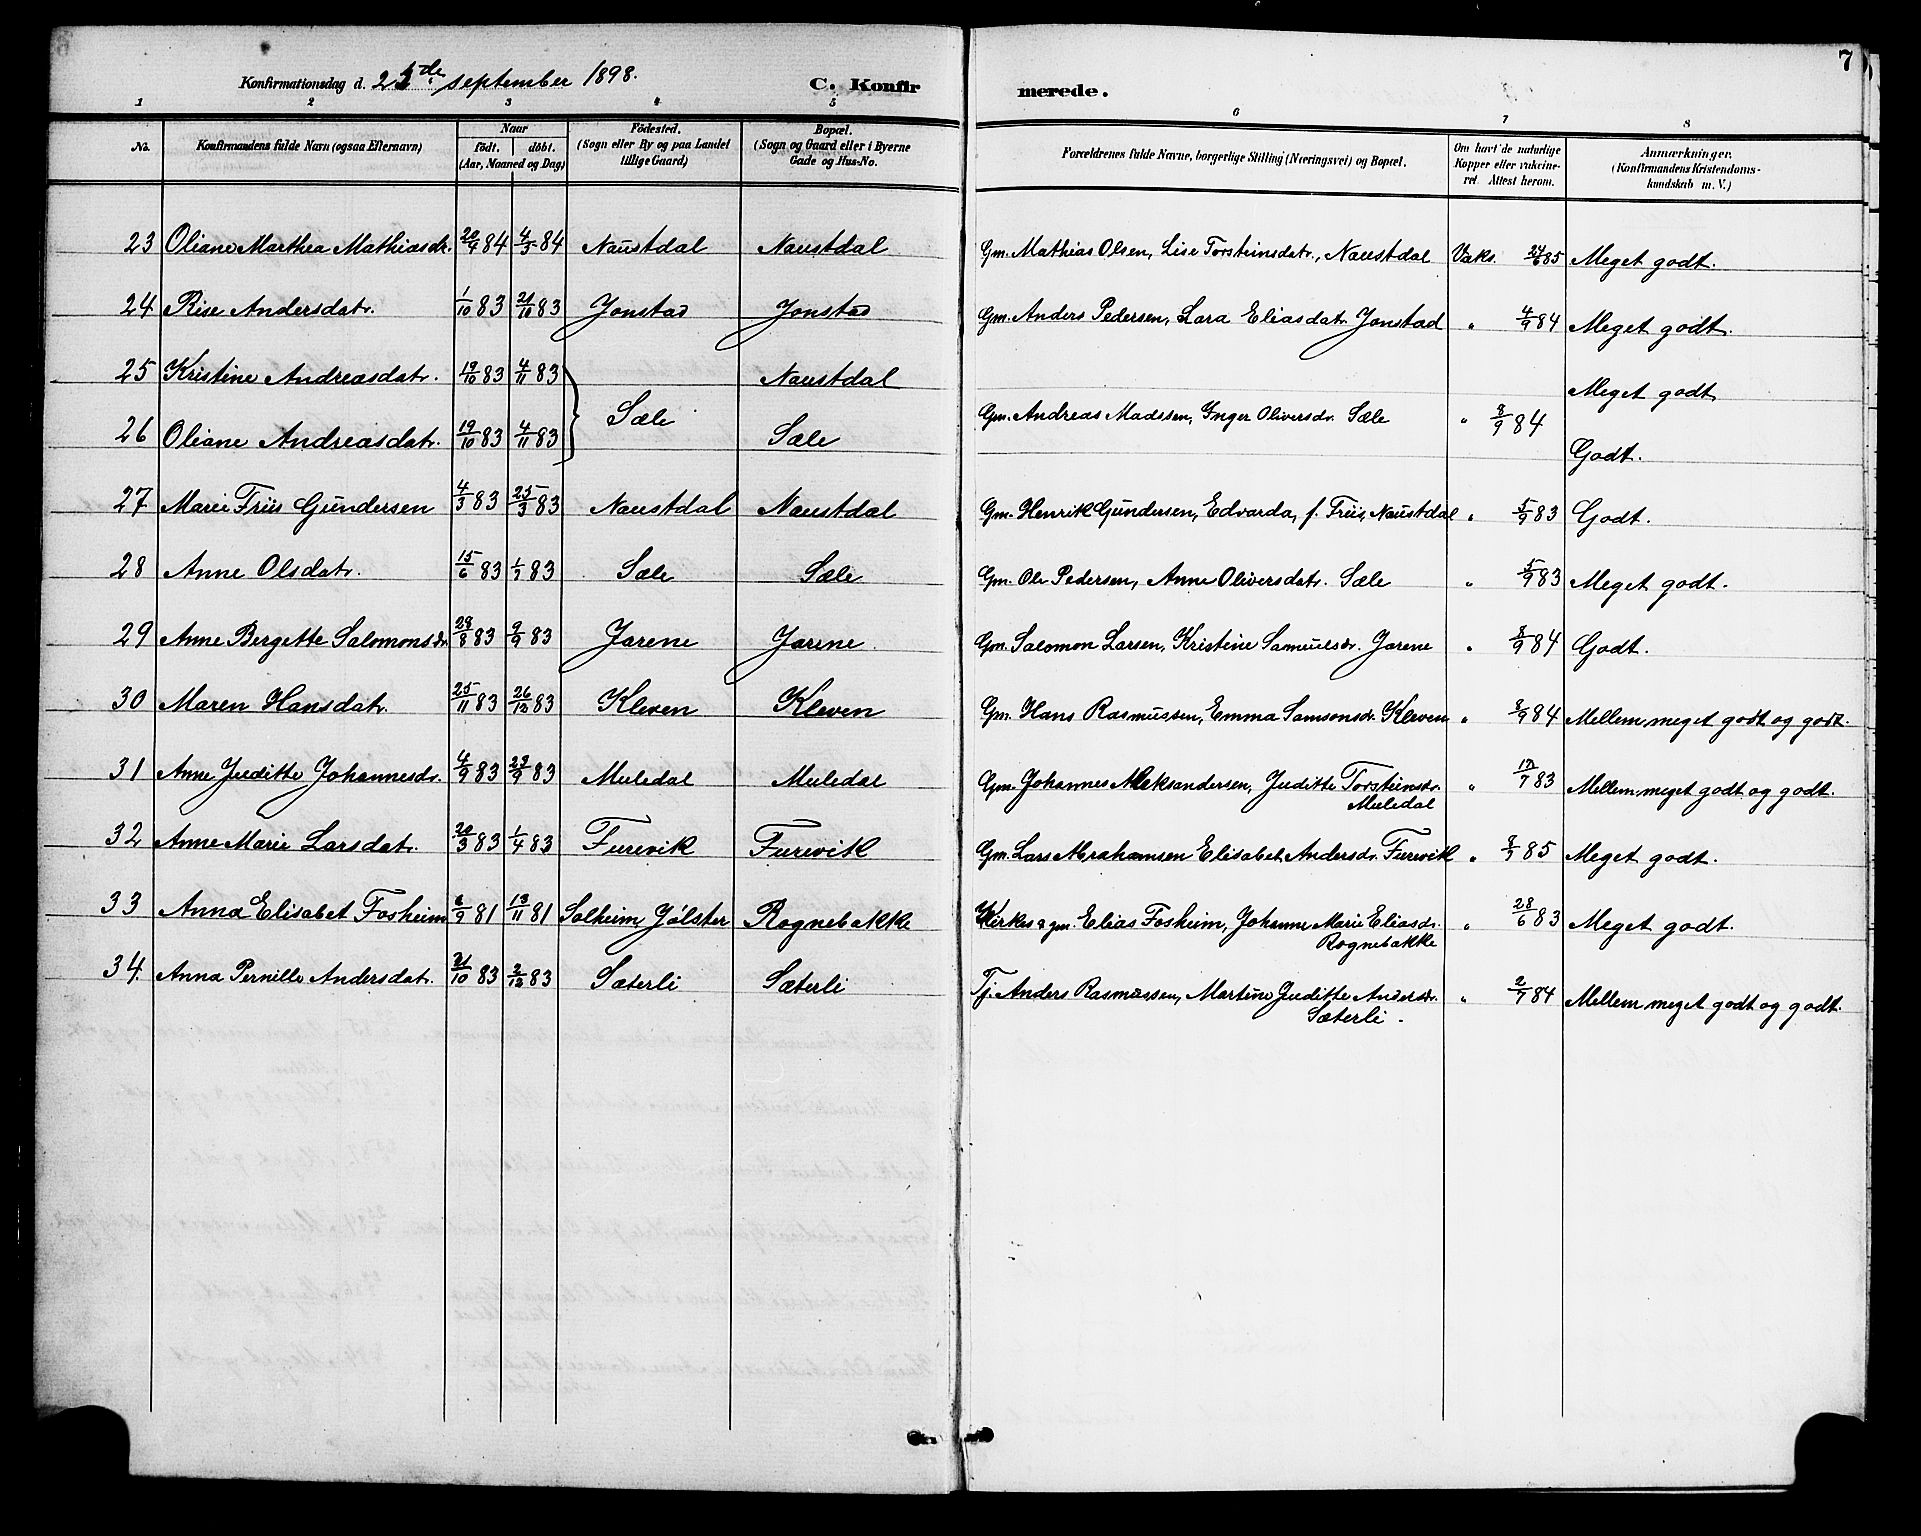 7
Konfirmationsdag d. 25de september 1898. C. Konfir merede.
1 2 3 4 5 6 7 8
No. Konfirmandens fulde Navn (ogsaa Efternavn) Naar født. døbt. (Aar, Maaned og Dag) Fødested. (Sogn eller By og paa Landet tillige Gaard) Bopæl. (Sogn og Gaard eller i Byerne Gade og Hus-No. Forældrenes fulde Navne, borgerlige Stilling (Næringsvei) og Bopæl. Om havt de naturlige Kopper eller vakcineret. Attest herom. Anmærkninger. (Konfirmandens Kristendomskundskab m. V.)
23 Oliane Marthea Mathiasdr. 20/4 84 4/5 84 Naustdal Naustdal Gm. Mathias Olsen, Lise Torsteinsdatr., Naustdal Vaks. 24/6 85 Meget godt.
24 Rise Andersdatr. 1/10 83 21/10 83 Jonstad Jonstad Gm. Anders Pedersen, Lara Eliasdatr. Jonstad " 4/9 84 Meget godt.
25 Kristine Andreasdatr. 19/10 83 4/11 83 Naustdal Meget godt
26 Oliane Andreasdatr. 19/10 83 4/11 83 } Sæle Sæle Gm. Andreas Madssen, Ynger Oliversdr. Sæle " 8/9 84 Godt.
27 Marie Friis Gundersen 4/3 83 25/3 83 Naustdal Naustdal Gm. Henrik Gundersen, Edvarda, f. Friis, Naustdal " 5/9 83 Godt.
28 Anne Olsdatr. 15/6 83 1/7 83 Sæle Sæle Gm. Ole Pedersen, Anne Oliversdatr. Sæle " 5/9 83 Meget godt.
29 Anne Bergette Salomonsdr. 28/8 83 9/9 83 Jarene Jarene. Gm. Salomon Larsen, Kristine Samuelsdr. Jarene " 8/9 84 Godt.
30 Maren Hansdatr. 25/11 83 26/12 83 Kleven Kleven Gm. Hans Rasmussen, Emma Samsonsdr. Kleven " 8/9 84 Mellem meget godt og godt.
31 Anne Juditte Johannesdr. 4/9 83 23/9 83 Muledal Muledal Gm. Johannes Aleksandersen, Juditte Torsteinsdr. Muledal " 12/7 83 Mellem meget godt og godt.
32 Anne Marie Larsdatr. 20/3 83 1/4 83 Furevik Furevik Gm. Lars Abrahamsen Elisabet Andersdr. Furevik " 8/7 85 Meget godt.
33 Anna Elisabet Fosheim 6/9 81 13/11 81 Solheim, Jølster Rognebakke Kirkes. gm. Elias Fosheim, Johanne Marie Eliasdr. Rognebakke " 28/6 83 Meget godt.
34. Anna Pernille Andersdatr. 21/10 83 2/12 83 Sæterli Sæterli Tj. Anders Rasmussen, Martine Juditte Andersdr. Sæterli. " 2/7 84 Mellem meget godt og godt.